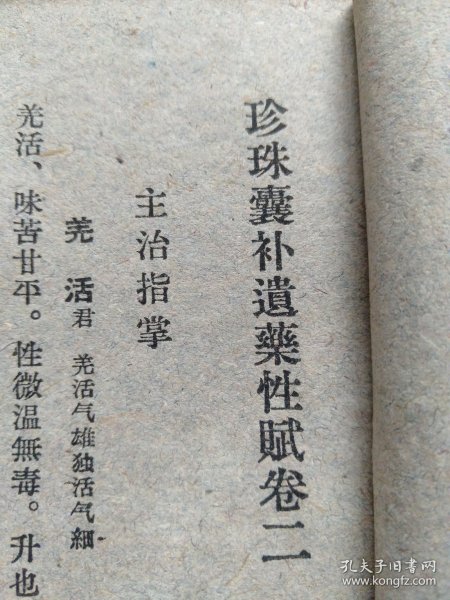 珍珠囊补遺藥性賦卷二
主治指掌
羌活君 羌活气雄独活气細
羌活、味苦甘平。性微温無毒。升也
孔夫子旧书网
www.kongfz.com